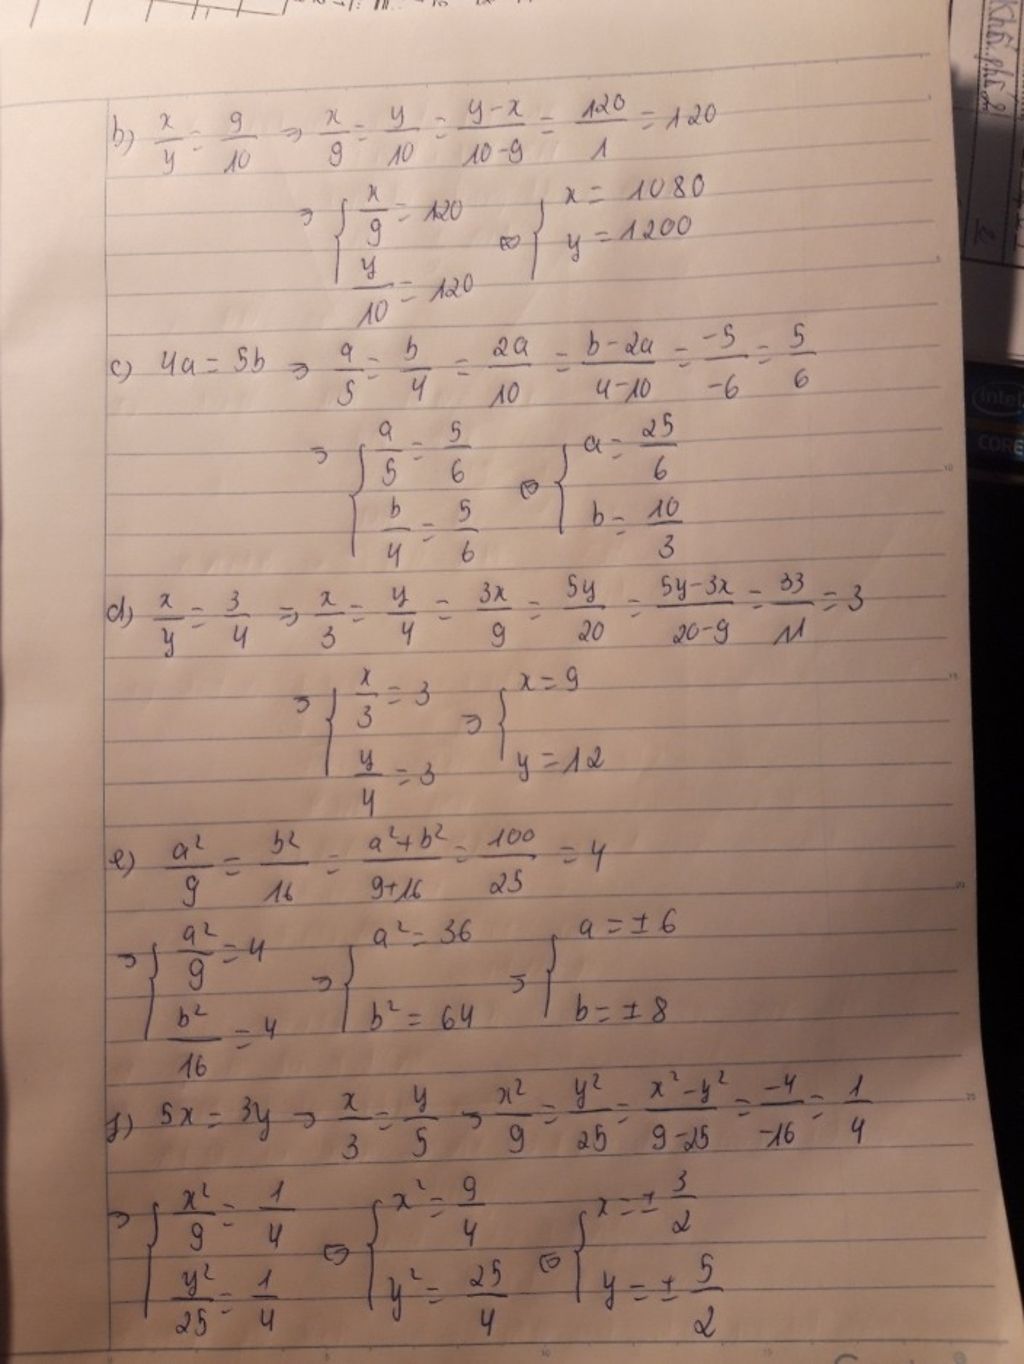 b) x/y = 9/10 ⇒ x/9 = y/10 = (y-x)/(10-9) = 120/1 = 120
⇒ { x/9 = 120 ⇔ { x = 1080
y/10 = 120 y = 1200
c) 4a = 5b ⇒ a/5 = b/4 = 2a/10 = (b-2a)/(4-10) = -5/-6 = 5/6
⇒ { a/5 = 5/6 ⇔ { a = 25/6
b/4 = 5/6 b = 10/3
d) x/y = 3/4 ⇒ x/3 = y/4 = 3x/9 = 5y/20 = (5y-3x)/(20-9) = 33/11 = 3
⇒ { x/3 = 3 ⇒ { x = 9
y/4 = 3 y = 12
e) a²/9 = b²/16 = (a²+b²)/(9+16) = 100/25 = 4
⇒ { a²/9 = 4 ⇒ { a² = 36 ⇒ { a = ±6
b²/16 = 4 b² = 64 b = ±8
f) 5x = 3y ⇒ x/3 = y/5 ⇒ x²/9 = y²/25 = (x²-y²)/(9-25) = -4/-16 = 1/4
⇒ { x²/9 = 1/4 ⇔ { x² = 9/4 ⇔ { x = ±3/2
y²/25 = 1/4 y² = 25/4 y = ±5/2
intel
CORE